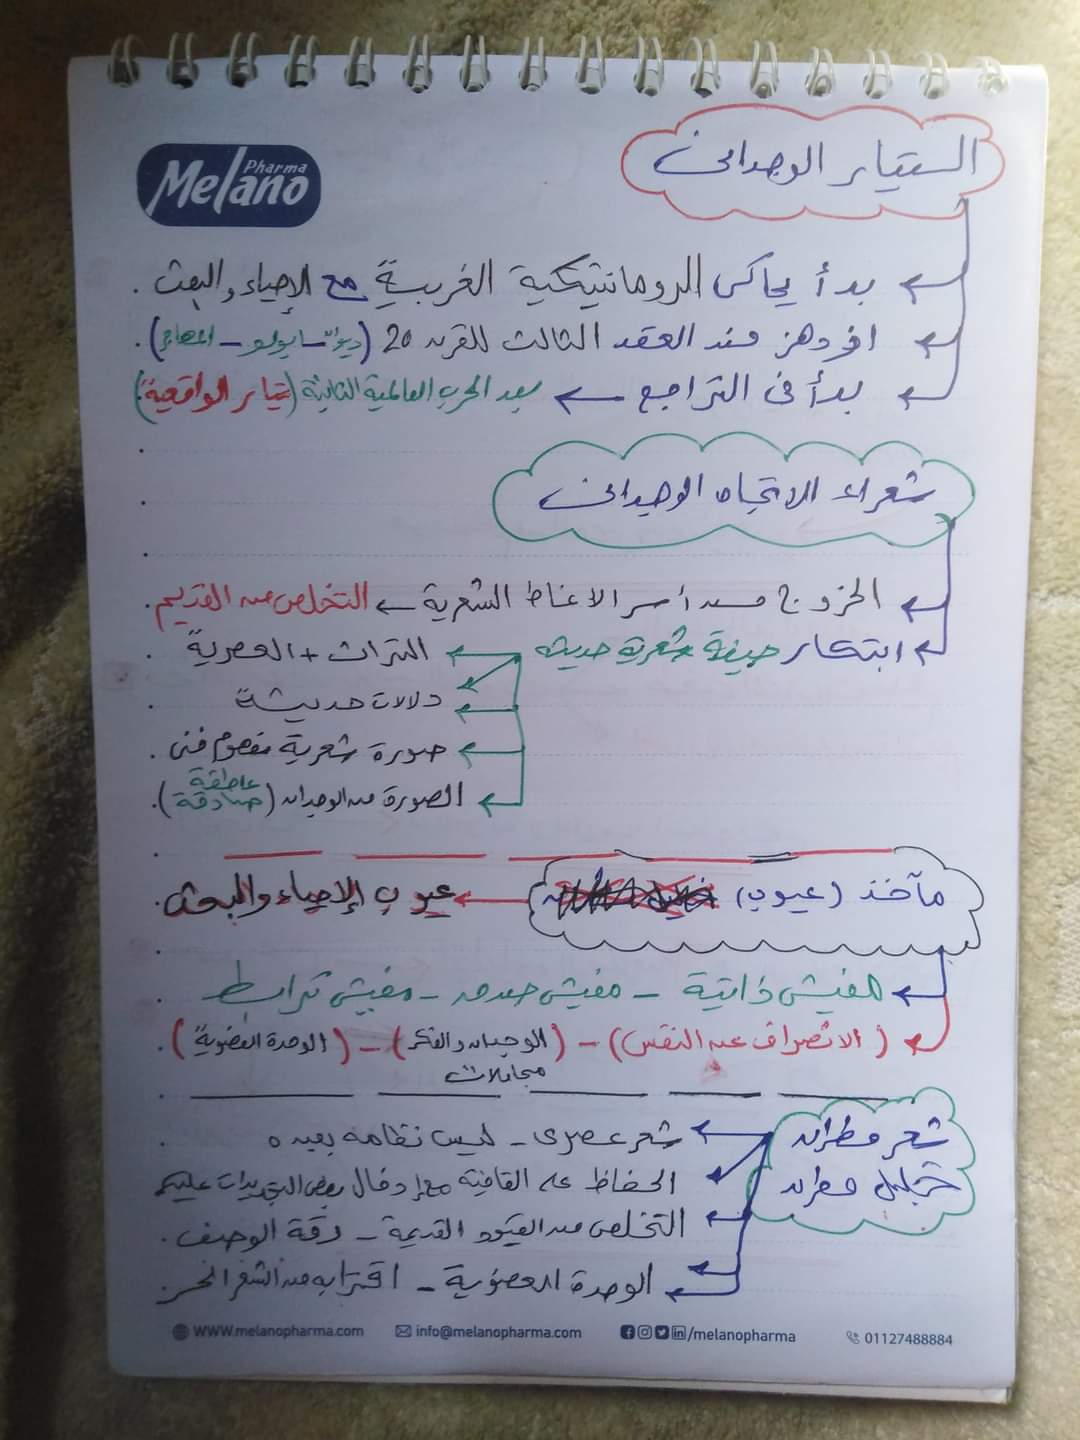 Melano Pharma
التيار الوجدانى
بدأ يحاكى الرومانتيكية الغربية مع الإحياء والبعث .
ازدهر منذ العقد الثالث للقرن 20 (ديوان - أبولو - المهاجر).
بدأ فى التراجع ← بعد الحرب العالمية الثانية (تيار الواقعية).
شعراء الاتجاه الوجدانى
الخروج من أسر الانماط الشعرية ← التخلص من القديم.
ابتكار صيغة شعرية حديثة ← التراث + العصرية .
دلالات حديثة .
صورة شعرية مفهوم فنى .
الصورة من الوجدان (عاطفة صادقة).
مآخذ (عيوب) ← عيوب الإحياء والبعث .
مفيش ذاتية - مفيش صدق - مفيش ترابط .
(الانصراف عن النفس) - (الوجدان والفكر) - (الوحدة العضوية) .
مجاملات
شعر مطران
خليل مطران
شعر عصرى - ليس نظامه بعيده .
الحفاظ على القافية مع إدخال بعض التجديدات عليهم
التخلص من القيود القديمة - دقة الوصف .
الوحدة العضوية - اقترابه من الشعر الحر .
WWW.melanopharma.com info@melanopharma.com /melanopharma 01127488884